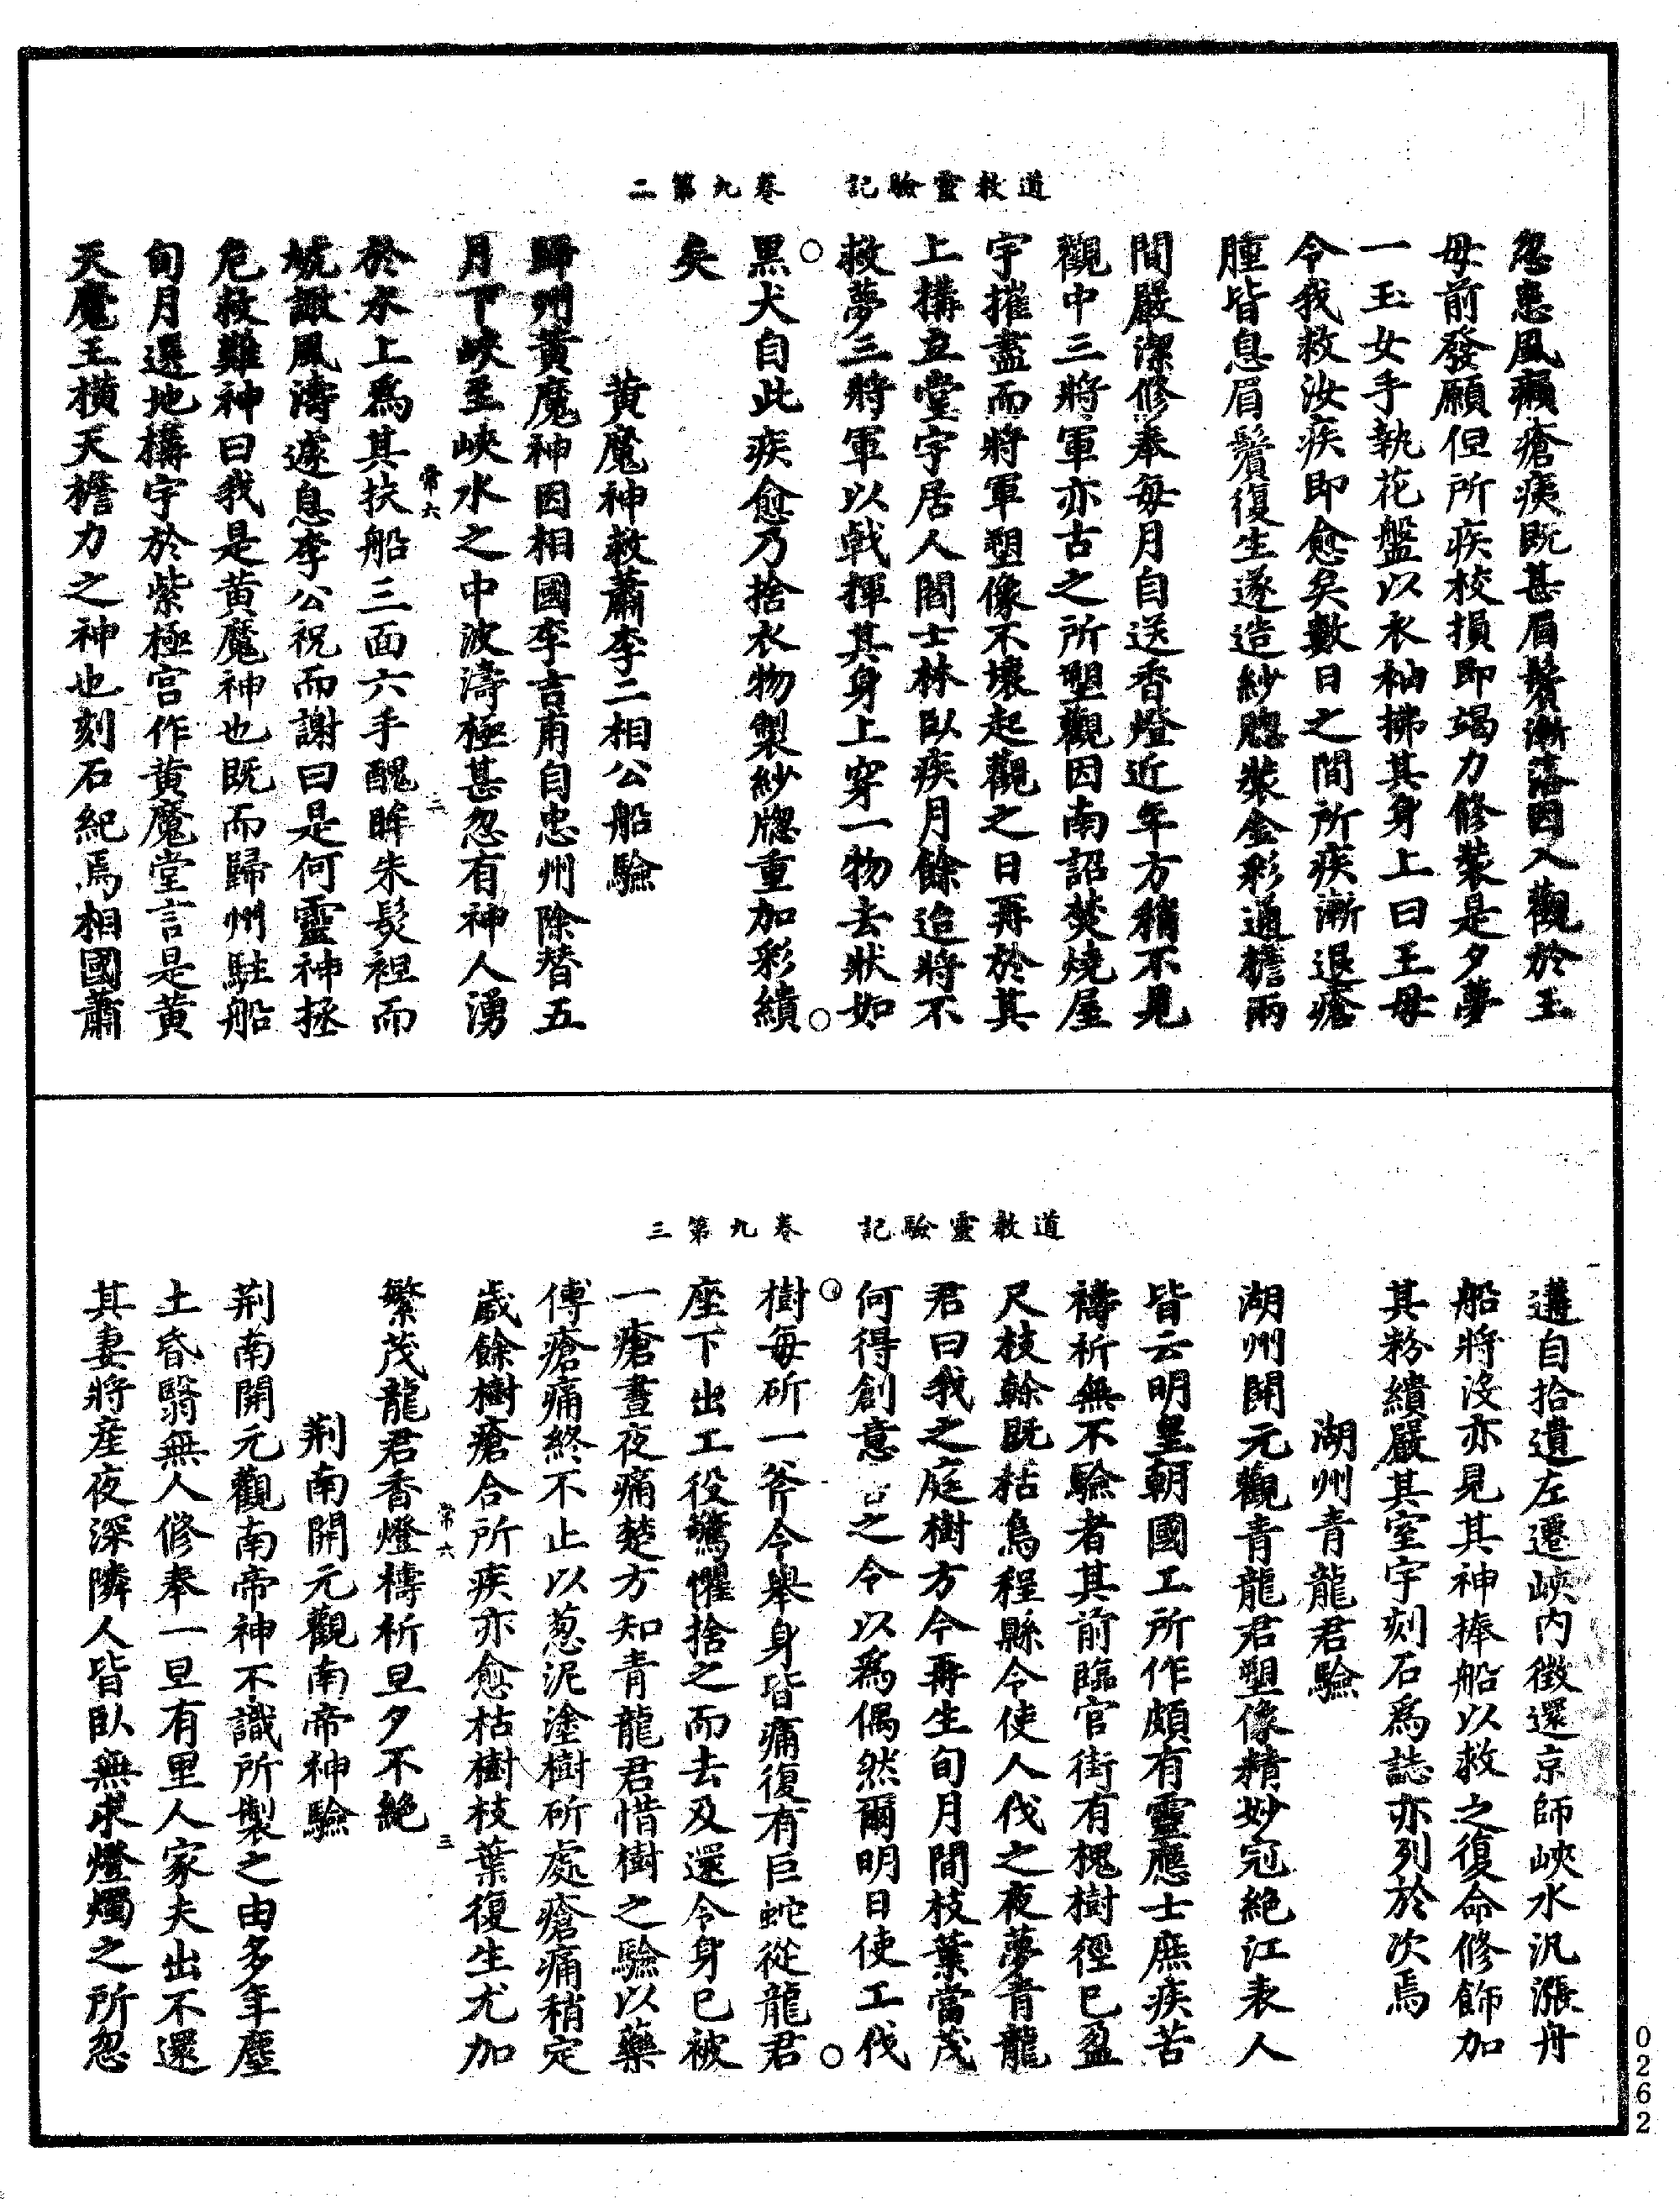 道教靈驗記　卷九第二
忽患風癩瘡痍既甚眉鬢漸落因入觀於王
母前發願但所疾校損即竭力修裝是夕夢
一玉女手執花盤以衣袖拂其身上曰王母
令我救汝疾即愈矣數日之間所疾漸退瘡
腫皆息眉鬢復生遂造紗牕裝金彩通檐兩
間嚴潔修奉每月自送香燈近年方稍不見
觀中三將軍亦古之所塑觀因南詔焚燒屋
宇摧盡而將軍塑像不壞起觀之日再於其
上構立堂宇居人閻士林臥疾月餘迨將不
救夢三將軍以戟揮其身上穿一物去狀如
黑犬自此疾愈乃捨衣物製紗牕重加彩繢
矣
黃魔神救蕭李二相公船驗
歸州黃魔神因相國李吉甫自忠州除替五
月下峽至峽水之中波濤極甚忽有神人湧
於水上為其扶船三面六手醜眸朱髮裎而
虓譀風濤遽息李公祝而謝曰是何靈神拯
危救難神曰我是黃魔神也既而歸州駐船
旬月選地構宇於紫極宮作黃魔堂言是黃
天魔王橫天檐力之神也刻石紀焉相國蕭
常六
二
道教靈驗記　卷九第三
遘自拾遺左遷峽內徵還京師峽水汎漲舟
船將沒亦見其神捧船以救之復命修飾加
其粉繢嚴其室宇刻石為誌亦列於次焉
湖州青龍君驗
湖州開元觀青龍君塑像精妙冠絕江表人
皆云明皇朝國工所作頗有靈應士庶疾苦
禱祈無不驗者其前臨官街有槐樹徑已盈
尺枝榦既枯烏程縣令使人伐之夜夢青龍
君曰我之庭樹方今再生旬月間枝葉當茂
何得創意之令以為偶然爾明日使工伐
樹每斫一斧令舉身皆痛復有巨蛇從龍君
座下出工役驚懼捨之而去及還令身已被
一瘡晝夜痛楚方知青龍君惜樹之驗以藥
傅瘡痛終不止以葱泥塗樹斫處瘡痛稍定
歲餘樹瘡合所疾亦愈枯樹枝葉復生尤加
繁茂龍君香燈禱祈旦夕不絕
荆南開元觀南帝神驗
荆南開元觀南帝神不識所製之由多年塵
土昏翳無人修奉一旦有里人家夫出不還
其妻將產夜深隣人皆臥無求燈燭之所忽
常六
三
0262